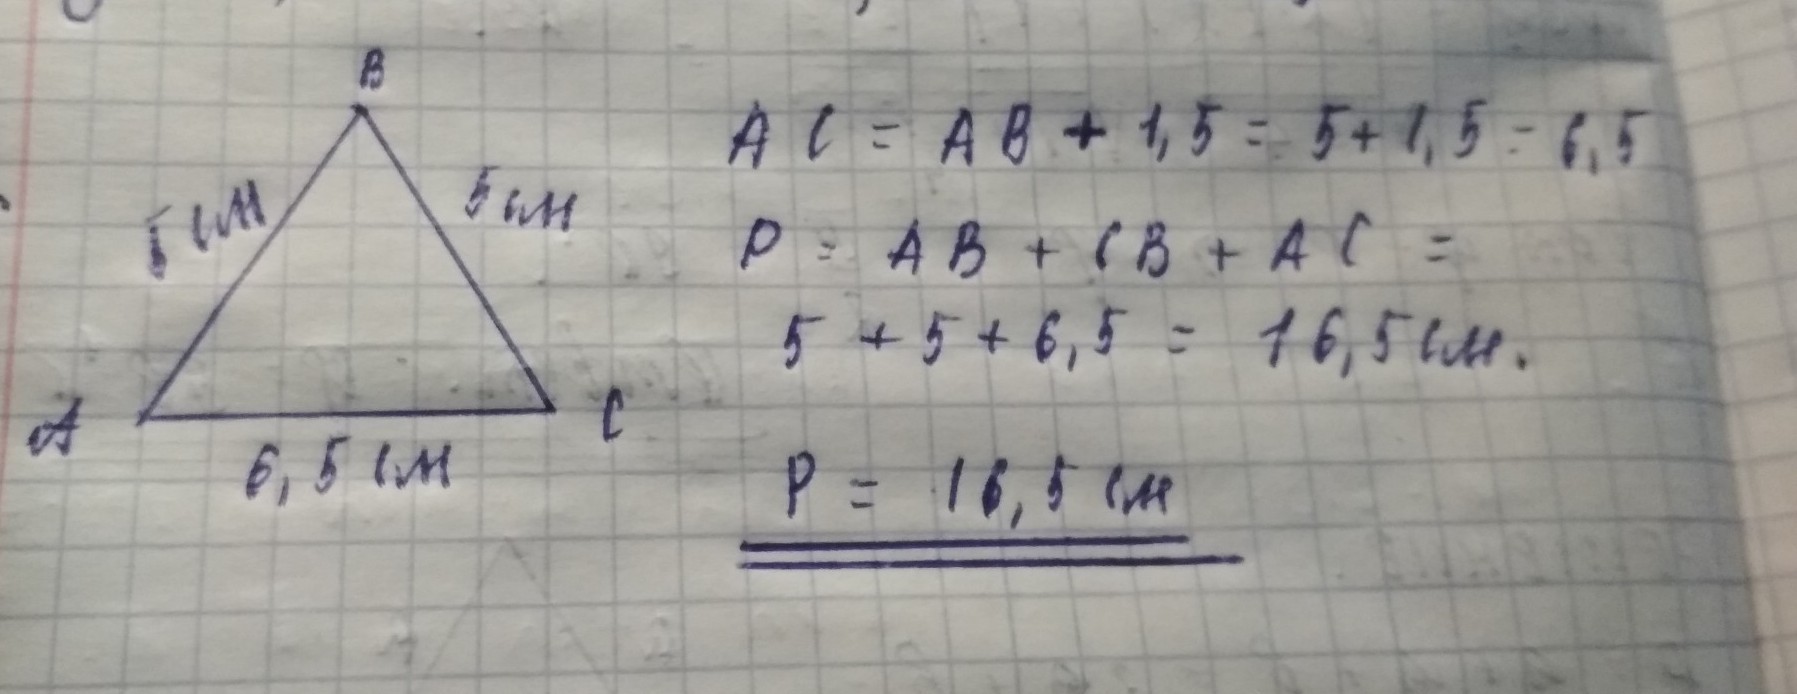 B
5 см
5 см
A
C
6,5 см
AC = AB + 1,5 = 5 + 1,5 = 6,5
P = AB + CB + AC =
5 + 5 + 6,5 = 16,5 см.
P = 16,5 см